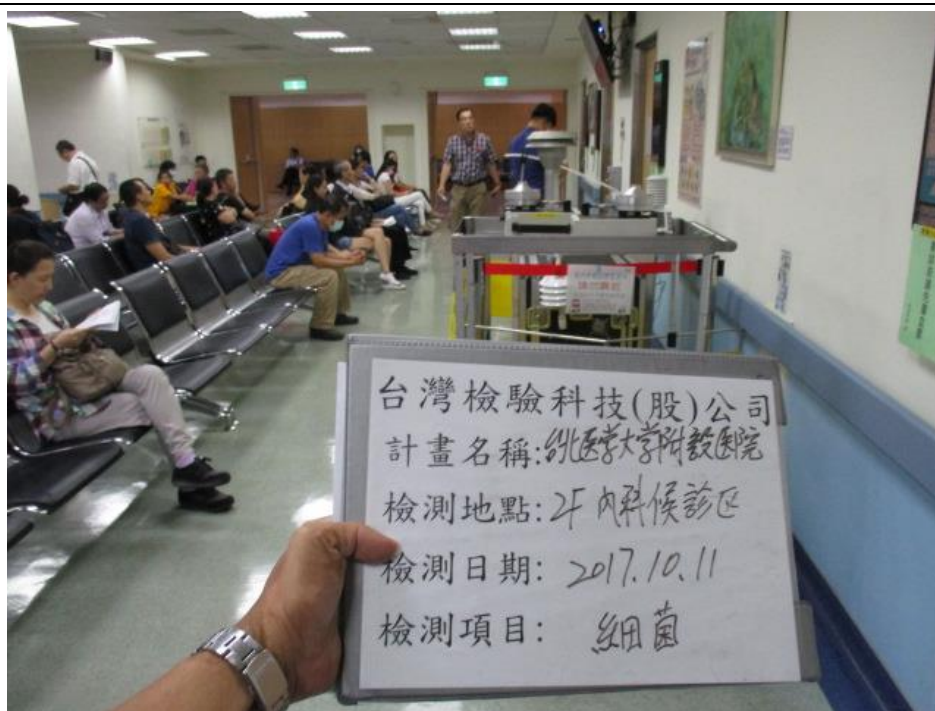 台灣檢驗科技(股)公司
計畫名稱:台北医学大学附設医院
檢測地點:2F 內科候診区
檢測日期: 2017.10.11
檢測項目: 細菌